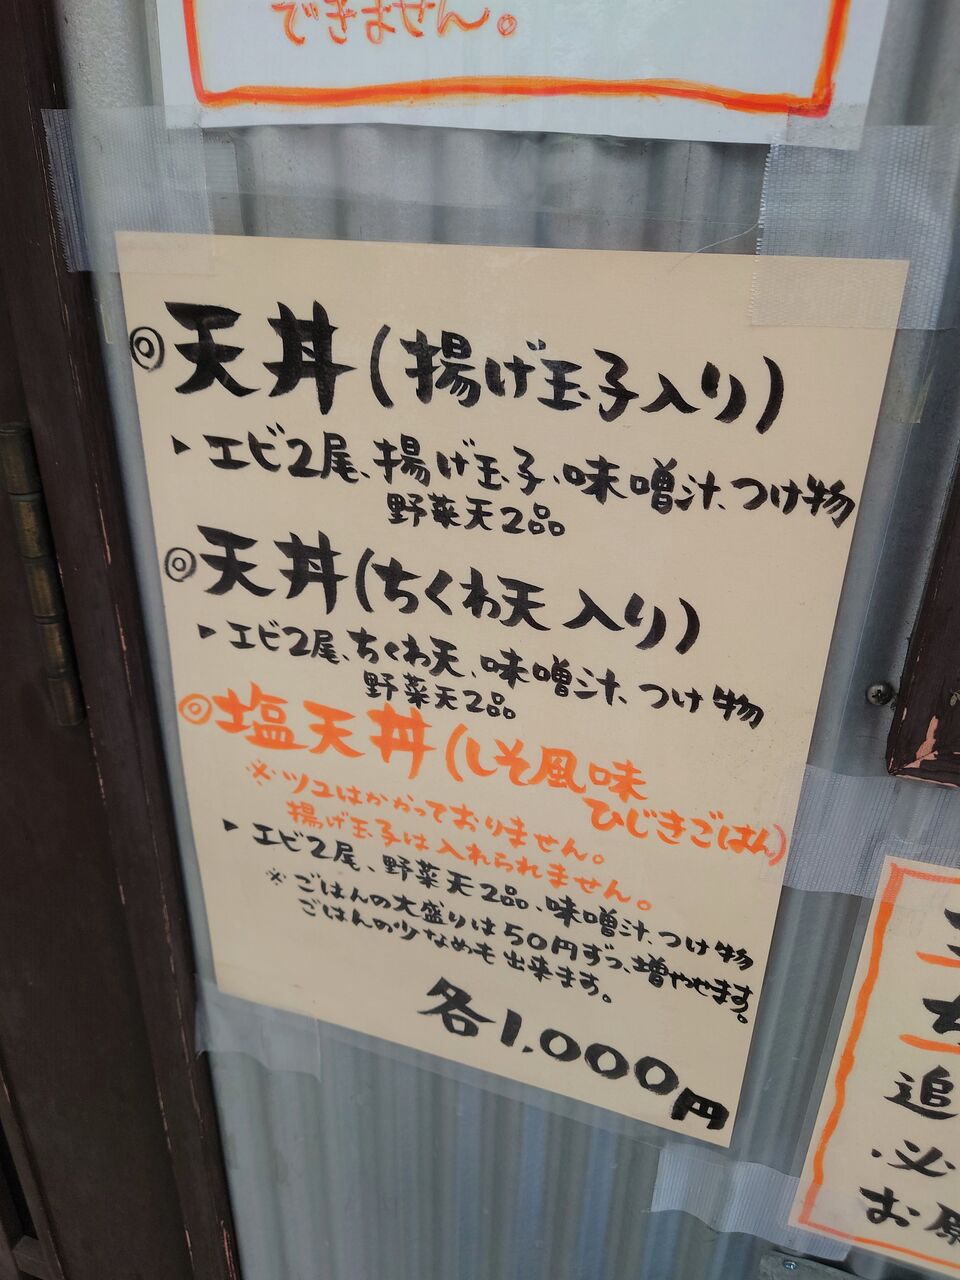 できません。
◎天丼(揚げ玉子入り)
▶エビ2尾、揚げ玉子、味噌汁、つけ物
野菜天2品
◎天丼(ちくわ天入り)
▶エビ2尾、ちくわ天、味噌汁、つけ物
野菜天2品
◎塩天丼(しそ風味
ひじきごはん)
※ツユはかかっておりません。
揚げ玉子は入れられません。
▶エビ2尾、野菜天2品、味噌汁、つけ物
※ごはんの大盛りは50円ずつ、増やせます。
ごはんの少なめも出来ます。
各1,000円
追
・必
お願